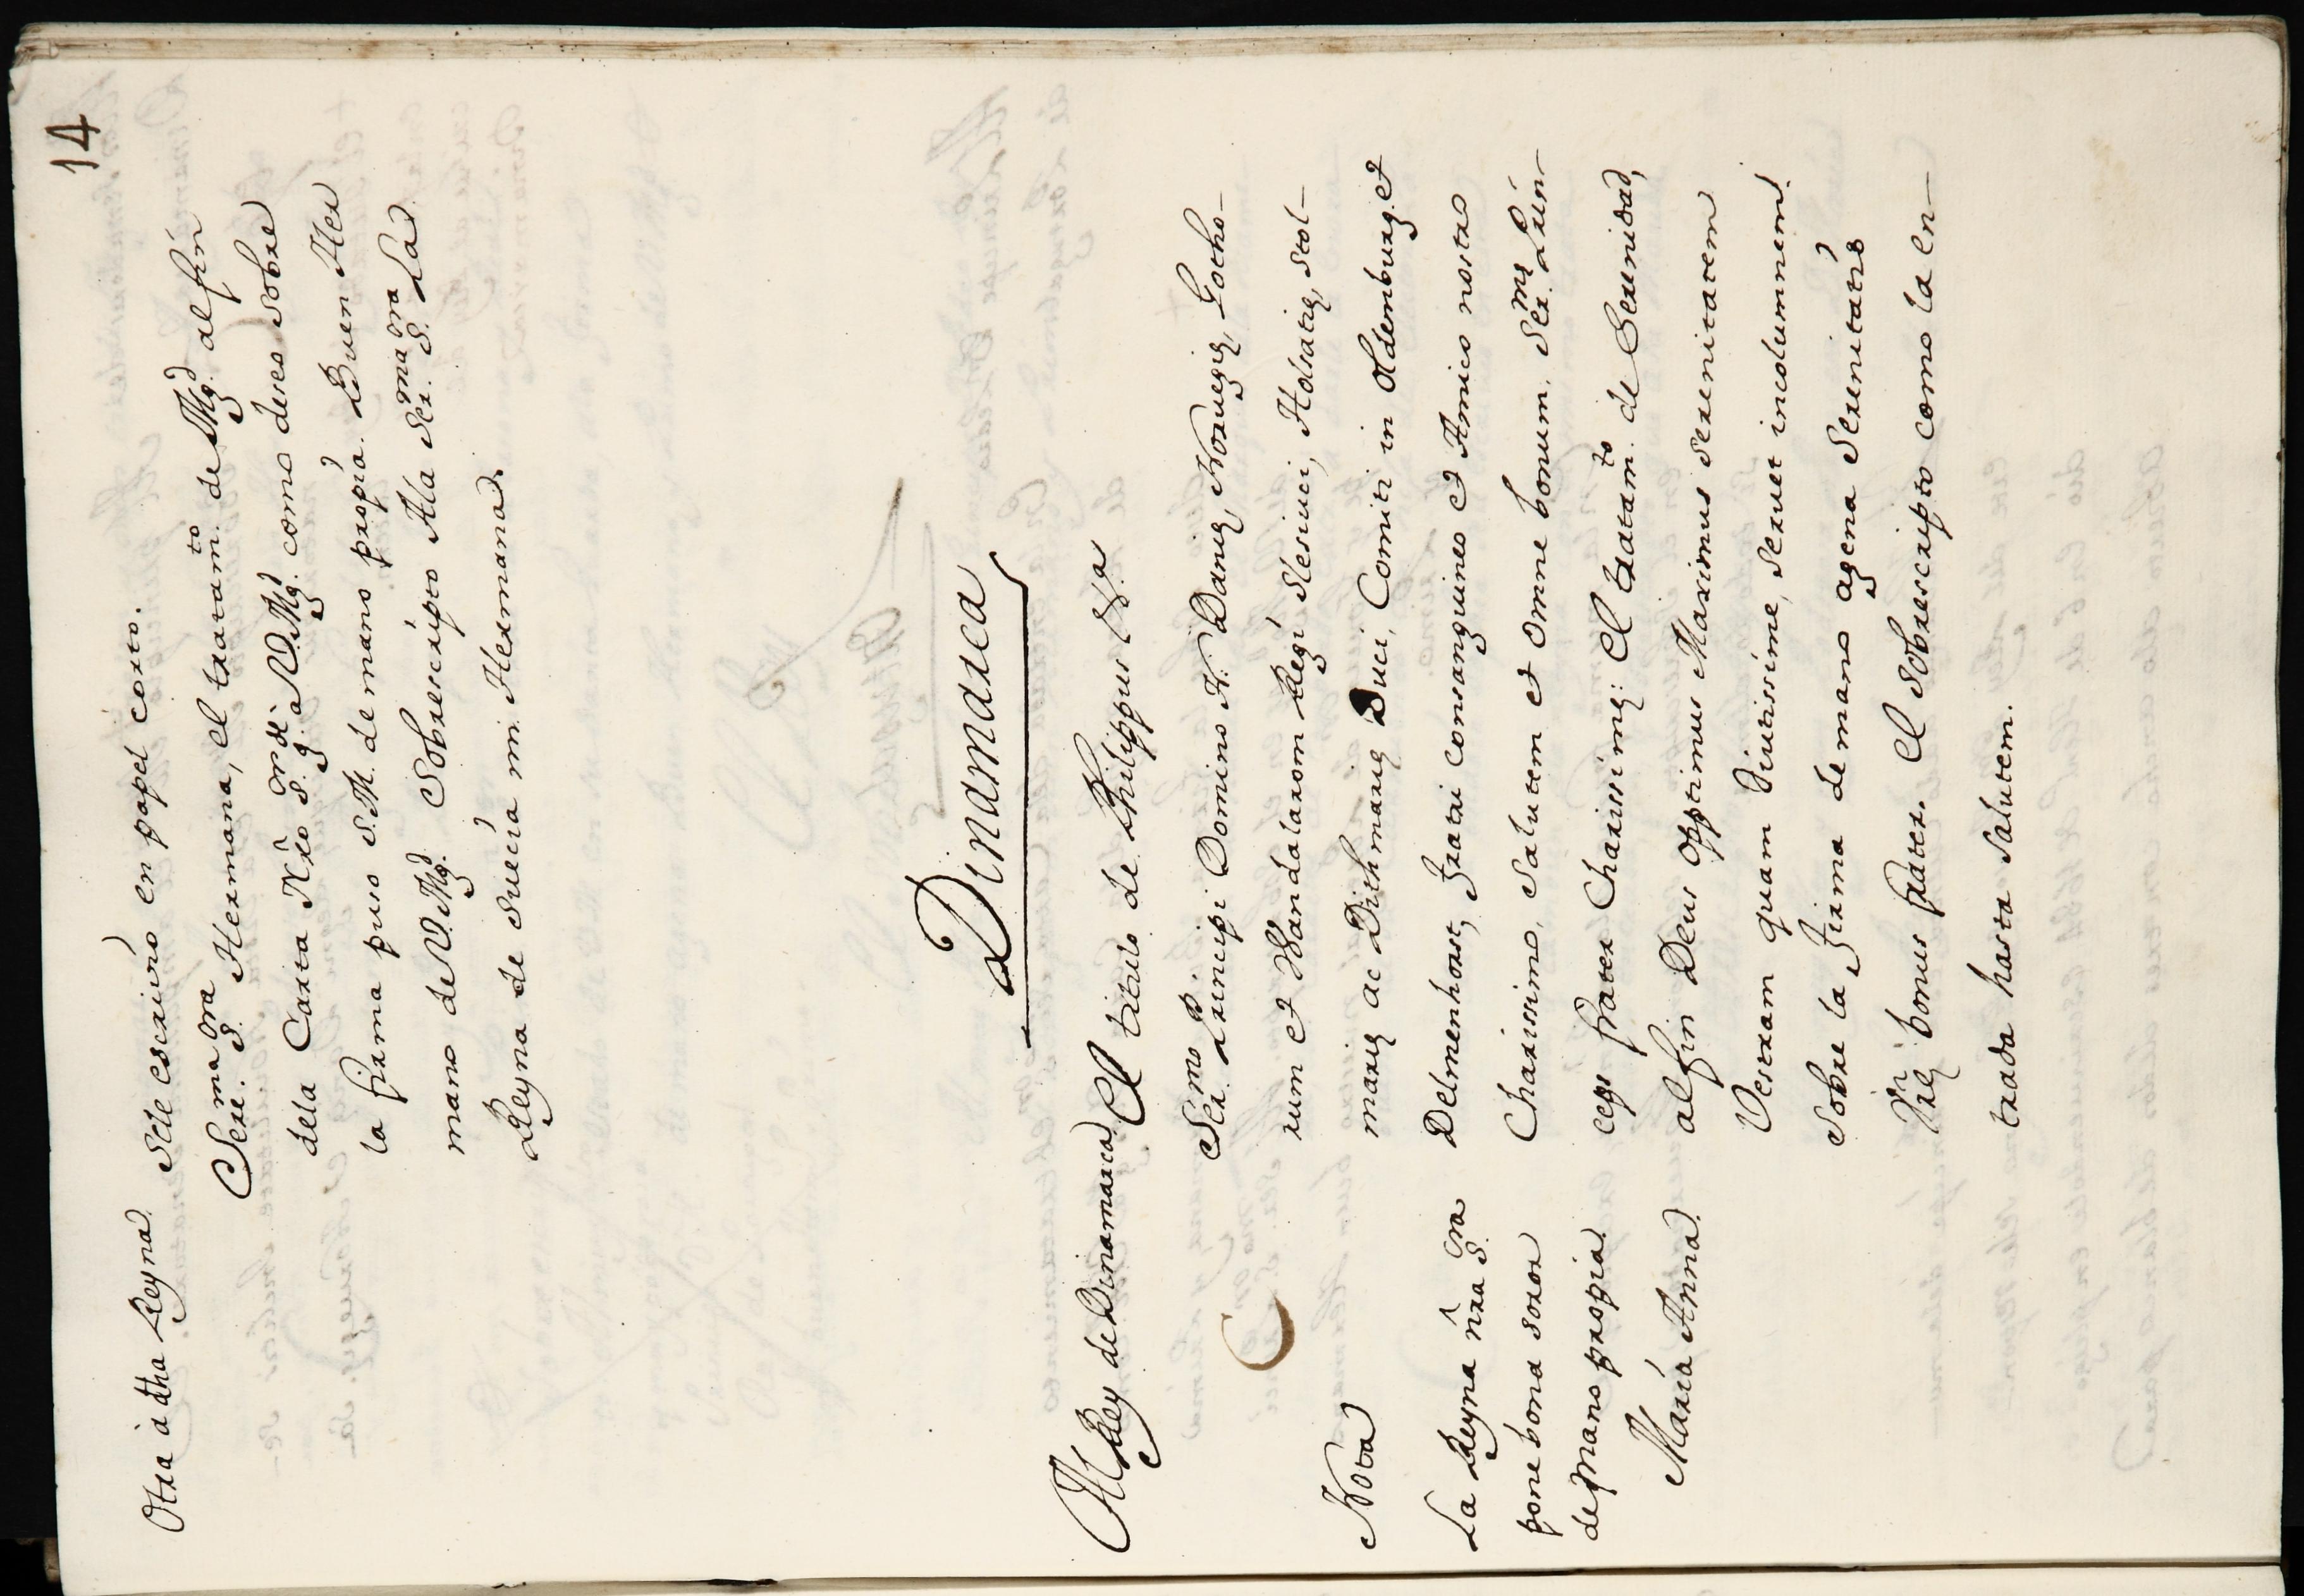 14
Otra à dha Reyna. Sele escrivió en papel corto.
Sere.ma S.ra Hermana, el tratam.to de Mg.d al fin
dela Carta Nr̃o S.r g.de a V. Mg.d como deseo sobre
la firma puso S.M. de mano propia Buen Her
mano de V. Mg.d Sobrescripto Ala Ser.ma S.ra La
Reyna de Suecia mi Hermana.
Dinamarca
Al Rey de Dinamarca El titulo de Philippus &.a
Ser.mo Principi Domino N. Danię, Norvegię, Gotho-
rum et Wandalarom Regi Slesiuci, Holsatię, Stol-
marię ac Dithmarię Duci, Comiti in Oldemburg. et
Delmenhorst, Fratri Consanguineo et Amico nostro
Charissimo, Salutem et omne bonum. Ser.ms Prin-
ceps frater Charissimę: El tratam.to de Serenidad,
al fin Deus Opptimus Maximus serenitatem
Vestram quam Diutissime, servet incolumnem.
Sobre la Firma de mano agena Serenitatis
Vr̃ę bonus frater. El sobrescripto como la en-
trada hasta salutem.
Nota
La Reyna ñra S.ra
pone bona soror
de mano propia.
Maria Anna.